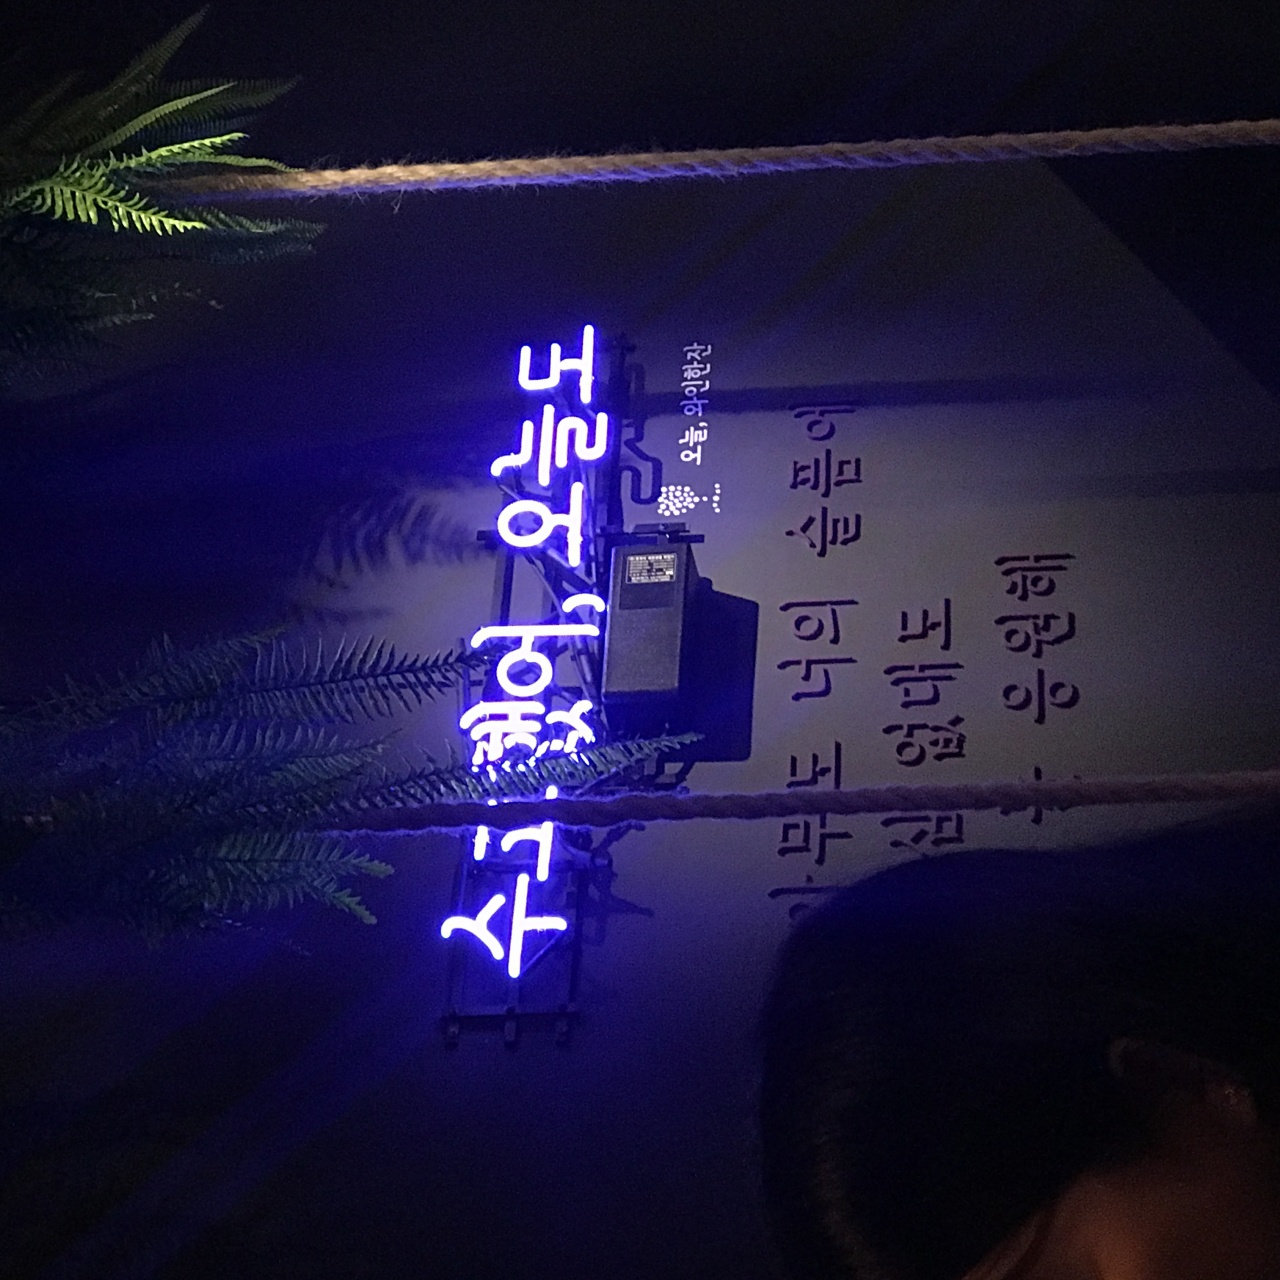 수고했어, 오늘도
오늘, 와인한잔
아무도 너의 슬픔에
심 없대도
늘 응원해